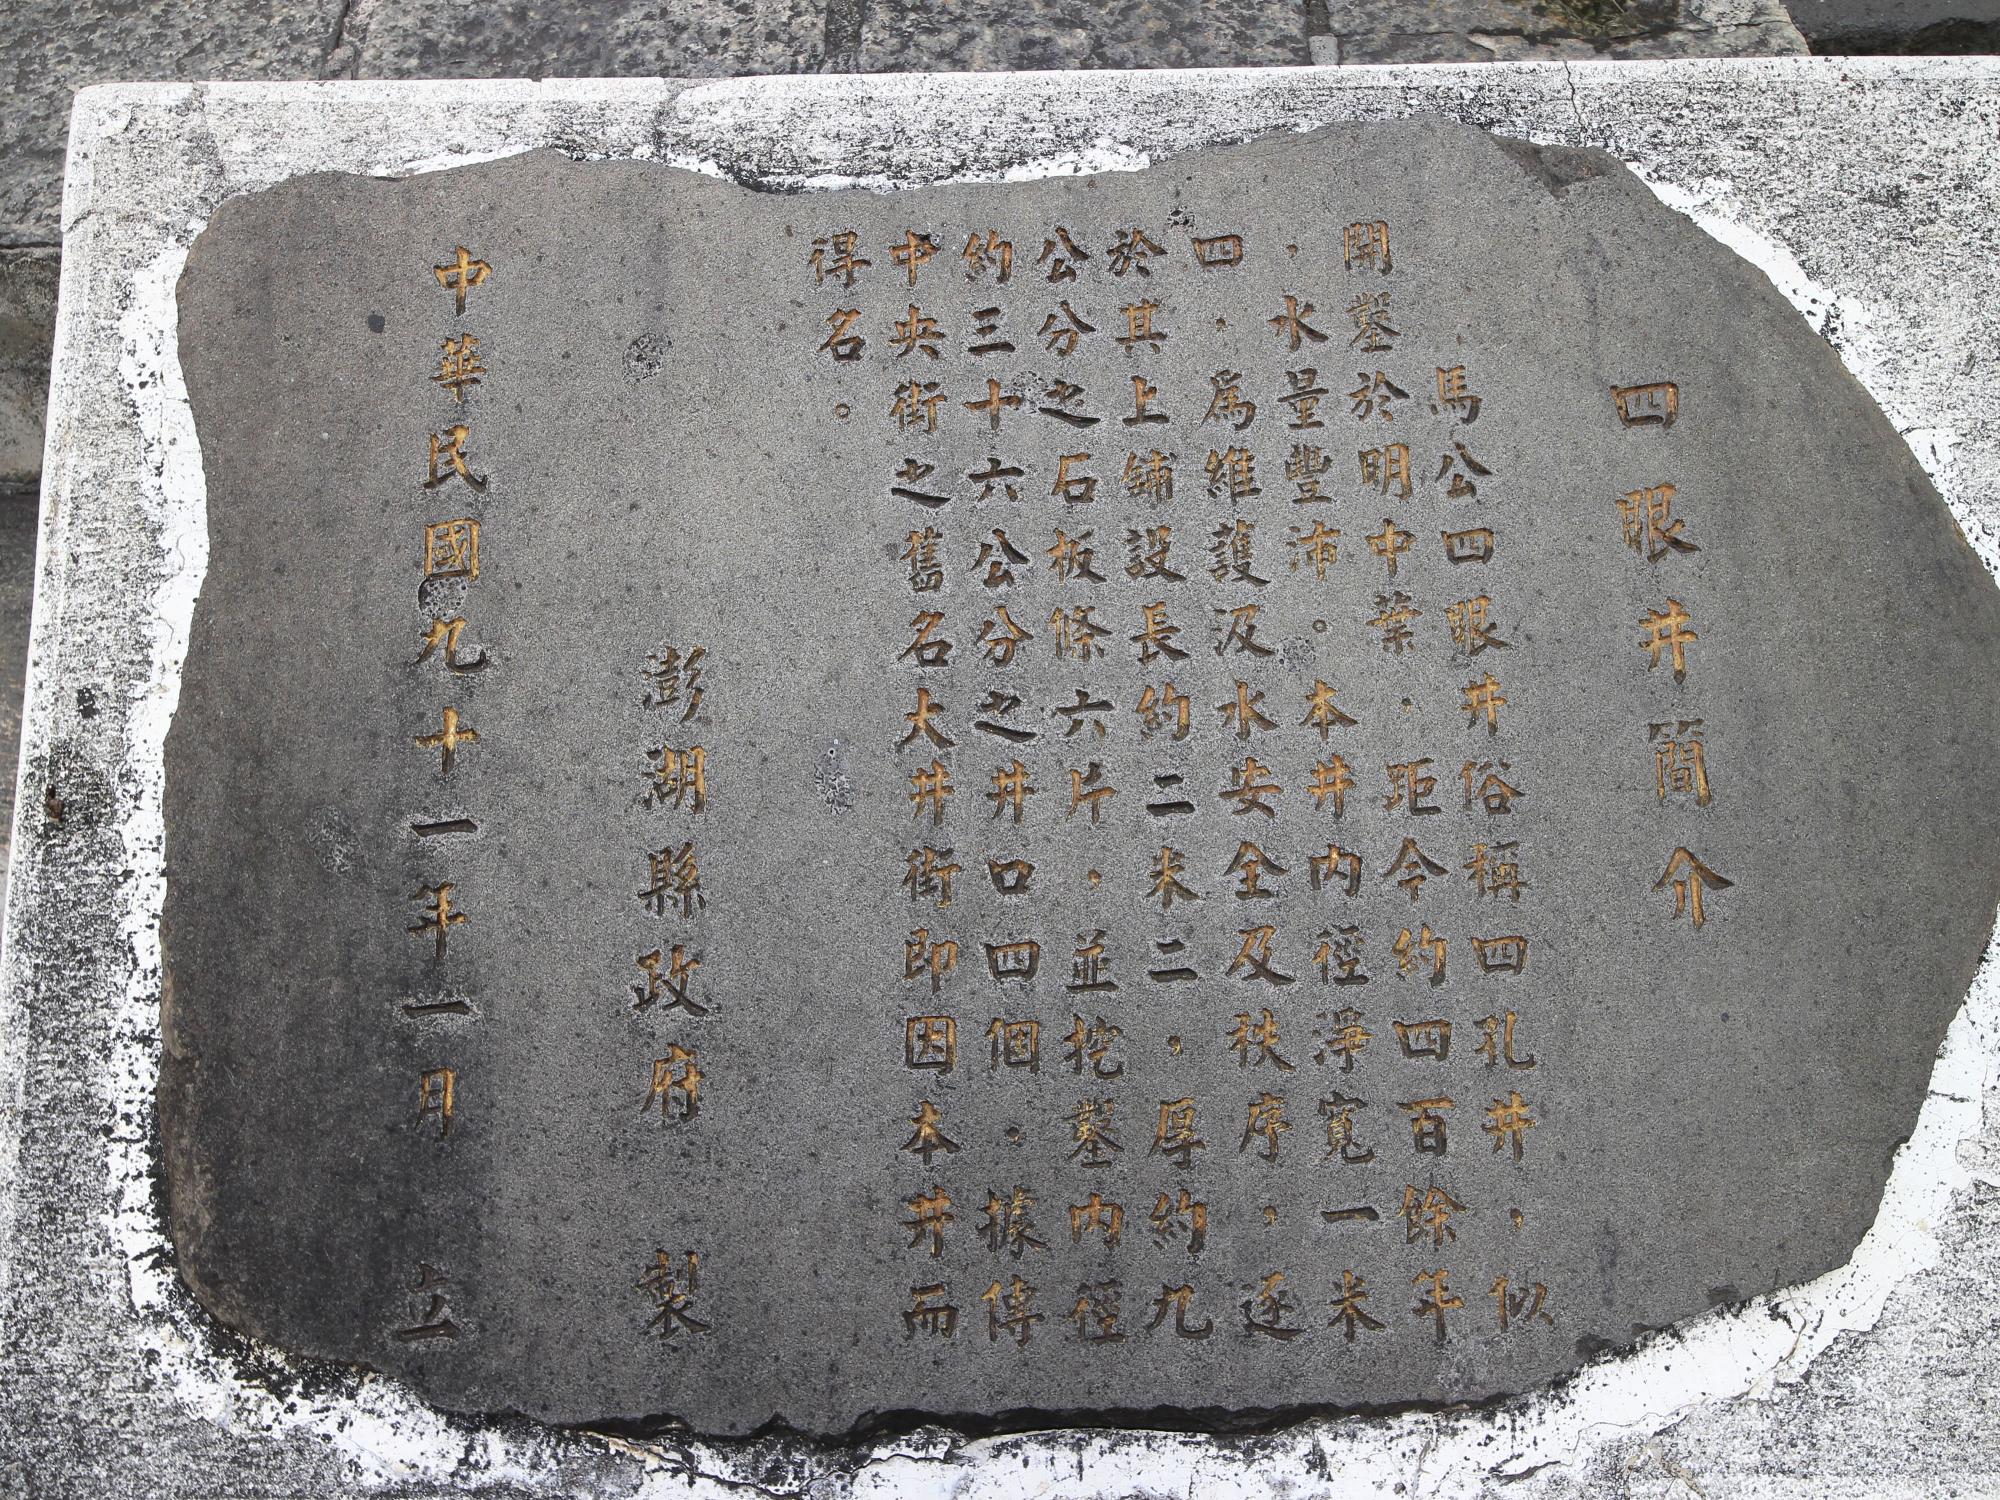 四眼井簡介
馬公四眼井俗稱四孔井，似
開鑿於明中葉，距今約四百餘年
，水量豐沛。本井內徑淨寬一米
四，爲維護汲水安全及秩序，逐
於其上鋪設長約二米二，厚約九
公分之石板條六片，並挖鑿內徑
約三十六公分之井口四個，據傳
中央街之舊名大井街即因本井而
得名。
澎湖縣政府 製
中華民國九十一年一月 立